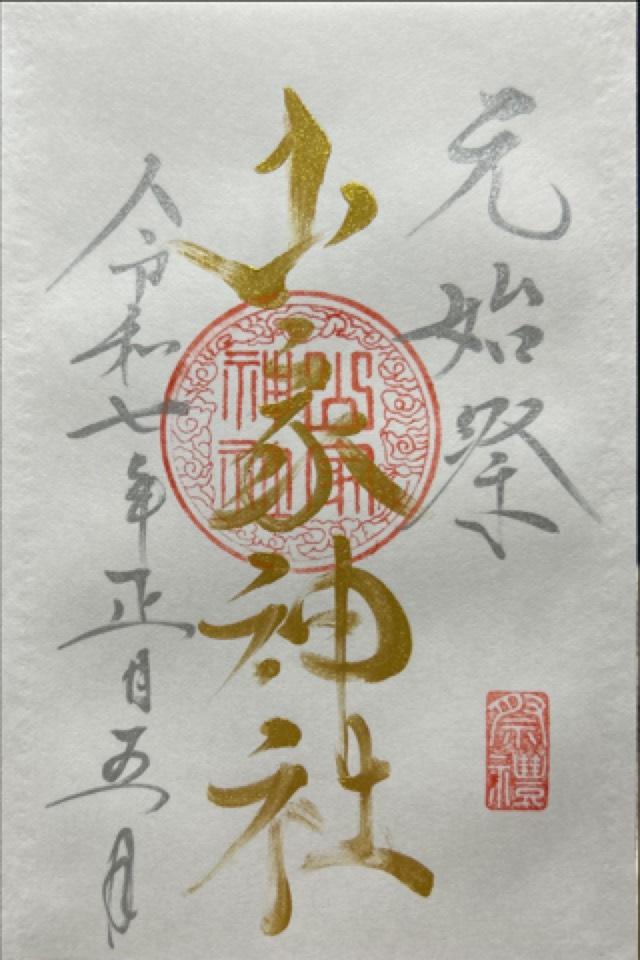 元始祭
山家神社
山家神社
令和七年正月五日